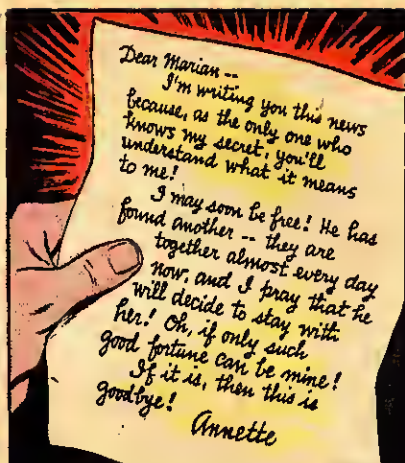 Dear Marian --
I'm writing you this news
because, as the only one who
knows my secret, you'll
understand what it means
to me!
I may soon be free! He has
found another -- they are
together almost every day
now, and I pray that he
will decide to stay with
her! Oh, if only such
good fortune can be mine!
If it is, then this is
goodbye!
Annette